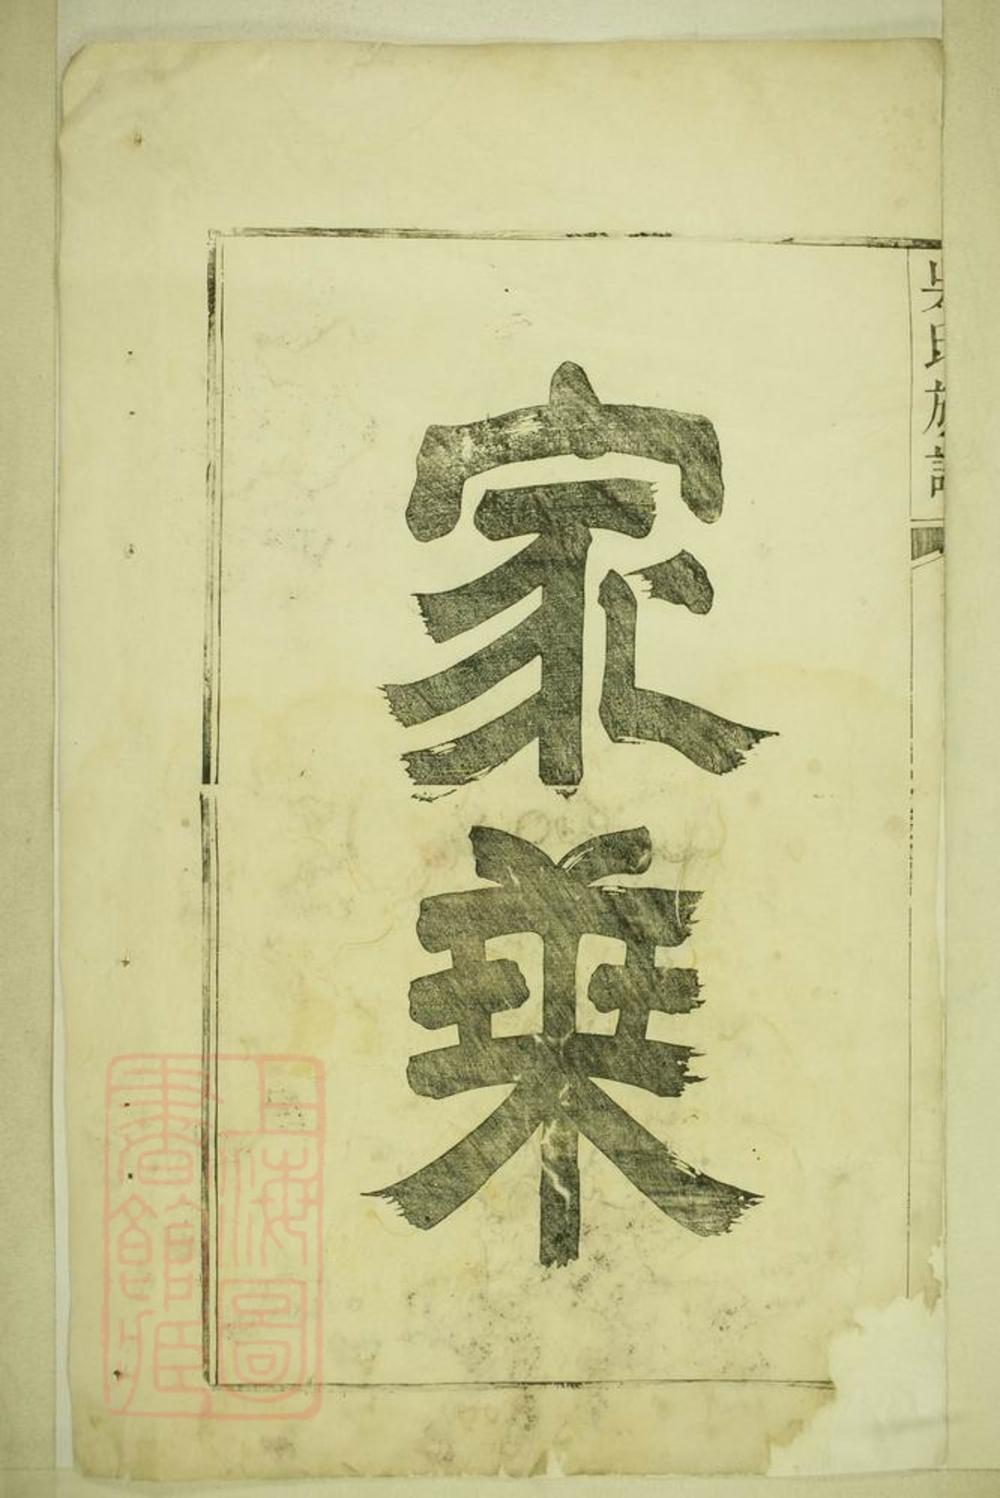 吴氏族譜
家乘
上海圖書館藏